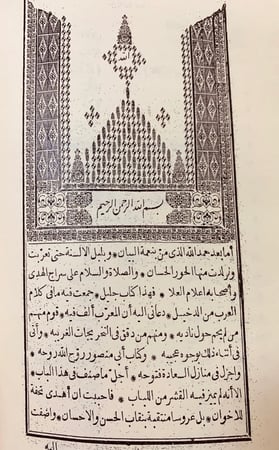 الله
بسم الله الرحمن الرحيم
أما بعد حمد الله الذى من شيمة البيان * وبلبل الالسنة حتى تعربت
وتولدت منها الحور الحسان * والصلاة والسلام على سراج الهدى
وأصحابه اعلام العلا * فهذا كتاب جليل * جمعت فيه مافى كلام
العرب من الدخيل * دعانى اليه أن المعرب ألف فيه * قوم منهم
من لم يحم حول ناديه * ومنهم من دقق فى التخريجات الغريبه * وأتى
فى أثناء ذلك بوجوه عجيبه * وكتاب أبى منصور روح الله روحه *
واجزل فى منازل السعادة فتوحه * أجل ما صنف فى هذا الباب *
الا أنه لم يميز فيه القشر من اللباب * فأحببت ان أهدى تحفة
للاخوان * بل عروسا منتقبة بنقاب الحسن والاحسان * واضفت
اليه